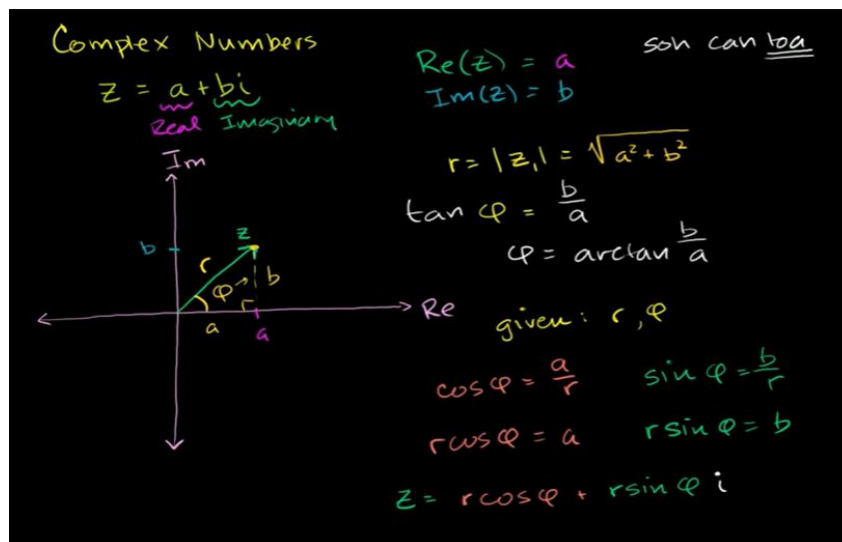 Complex Numbers
z = a + bi
Real Imaginary
Re(z) = a
Im(z) = b
soh cah toa
r = |z,| = √a² + b²
tan φ = b/a
φ = arctan b/a
Im
b
z
r
φ
b
a
a
Re
given: r, φ
cosφ = a/r
sin φ = b/r
rcosφ = a
rsin φ = b
z = rcosφ + rsin φ i